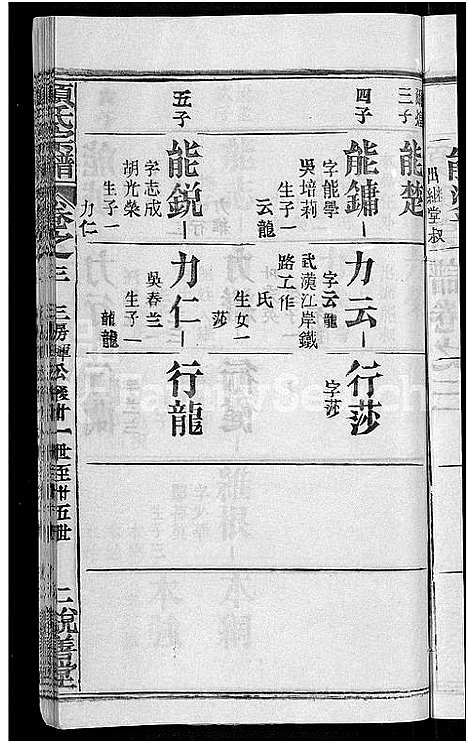 出繼堂叔
三子
能楚
四子
能鏞
字能學
吳培莉
生子一
云龍
力云
字云龍
武漢江岸鐵
路工作
氏
生女一
莎
行莎
字莎
五子
能銳
字志成
胡光榮
生子一
力仁
力仁
吳春兰
生子一
龍龍
行龍
項氏宗譜
卷之三
三房暉公後廿一世至廿五世
二
說善堂